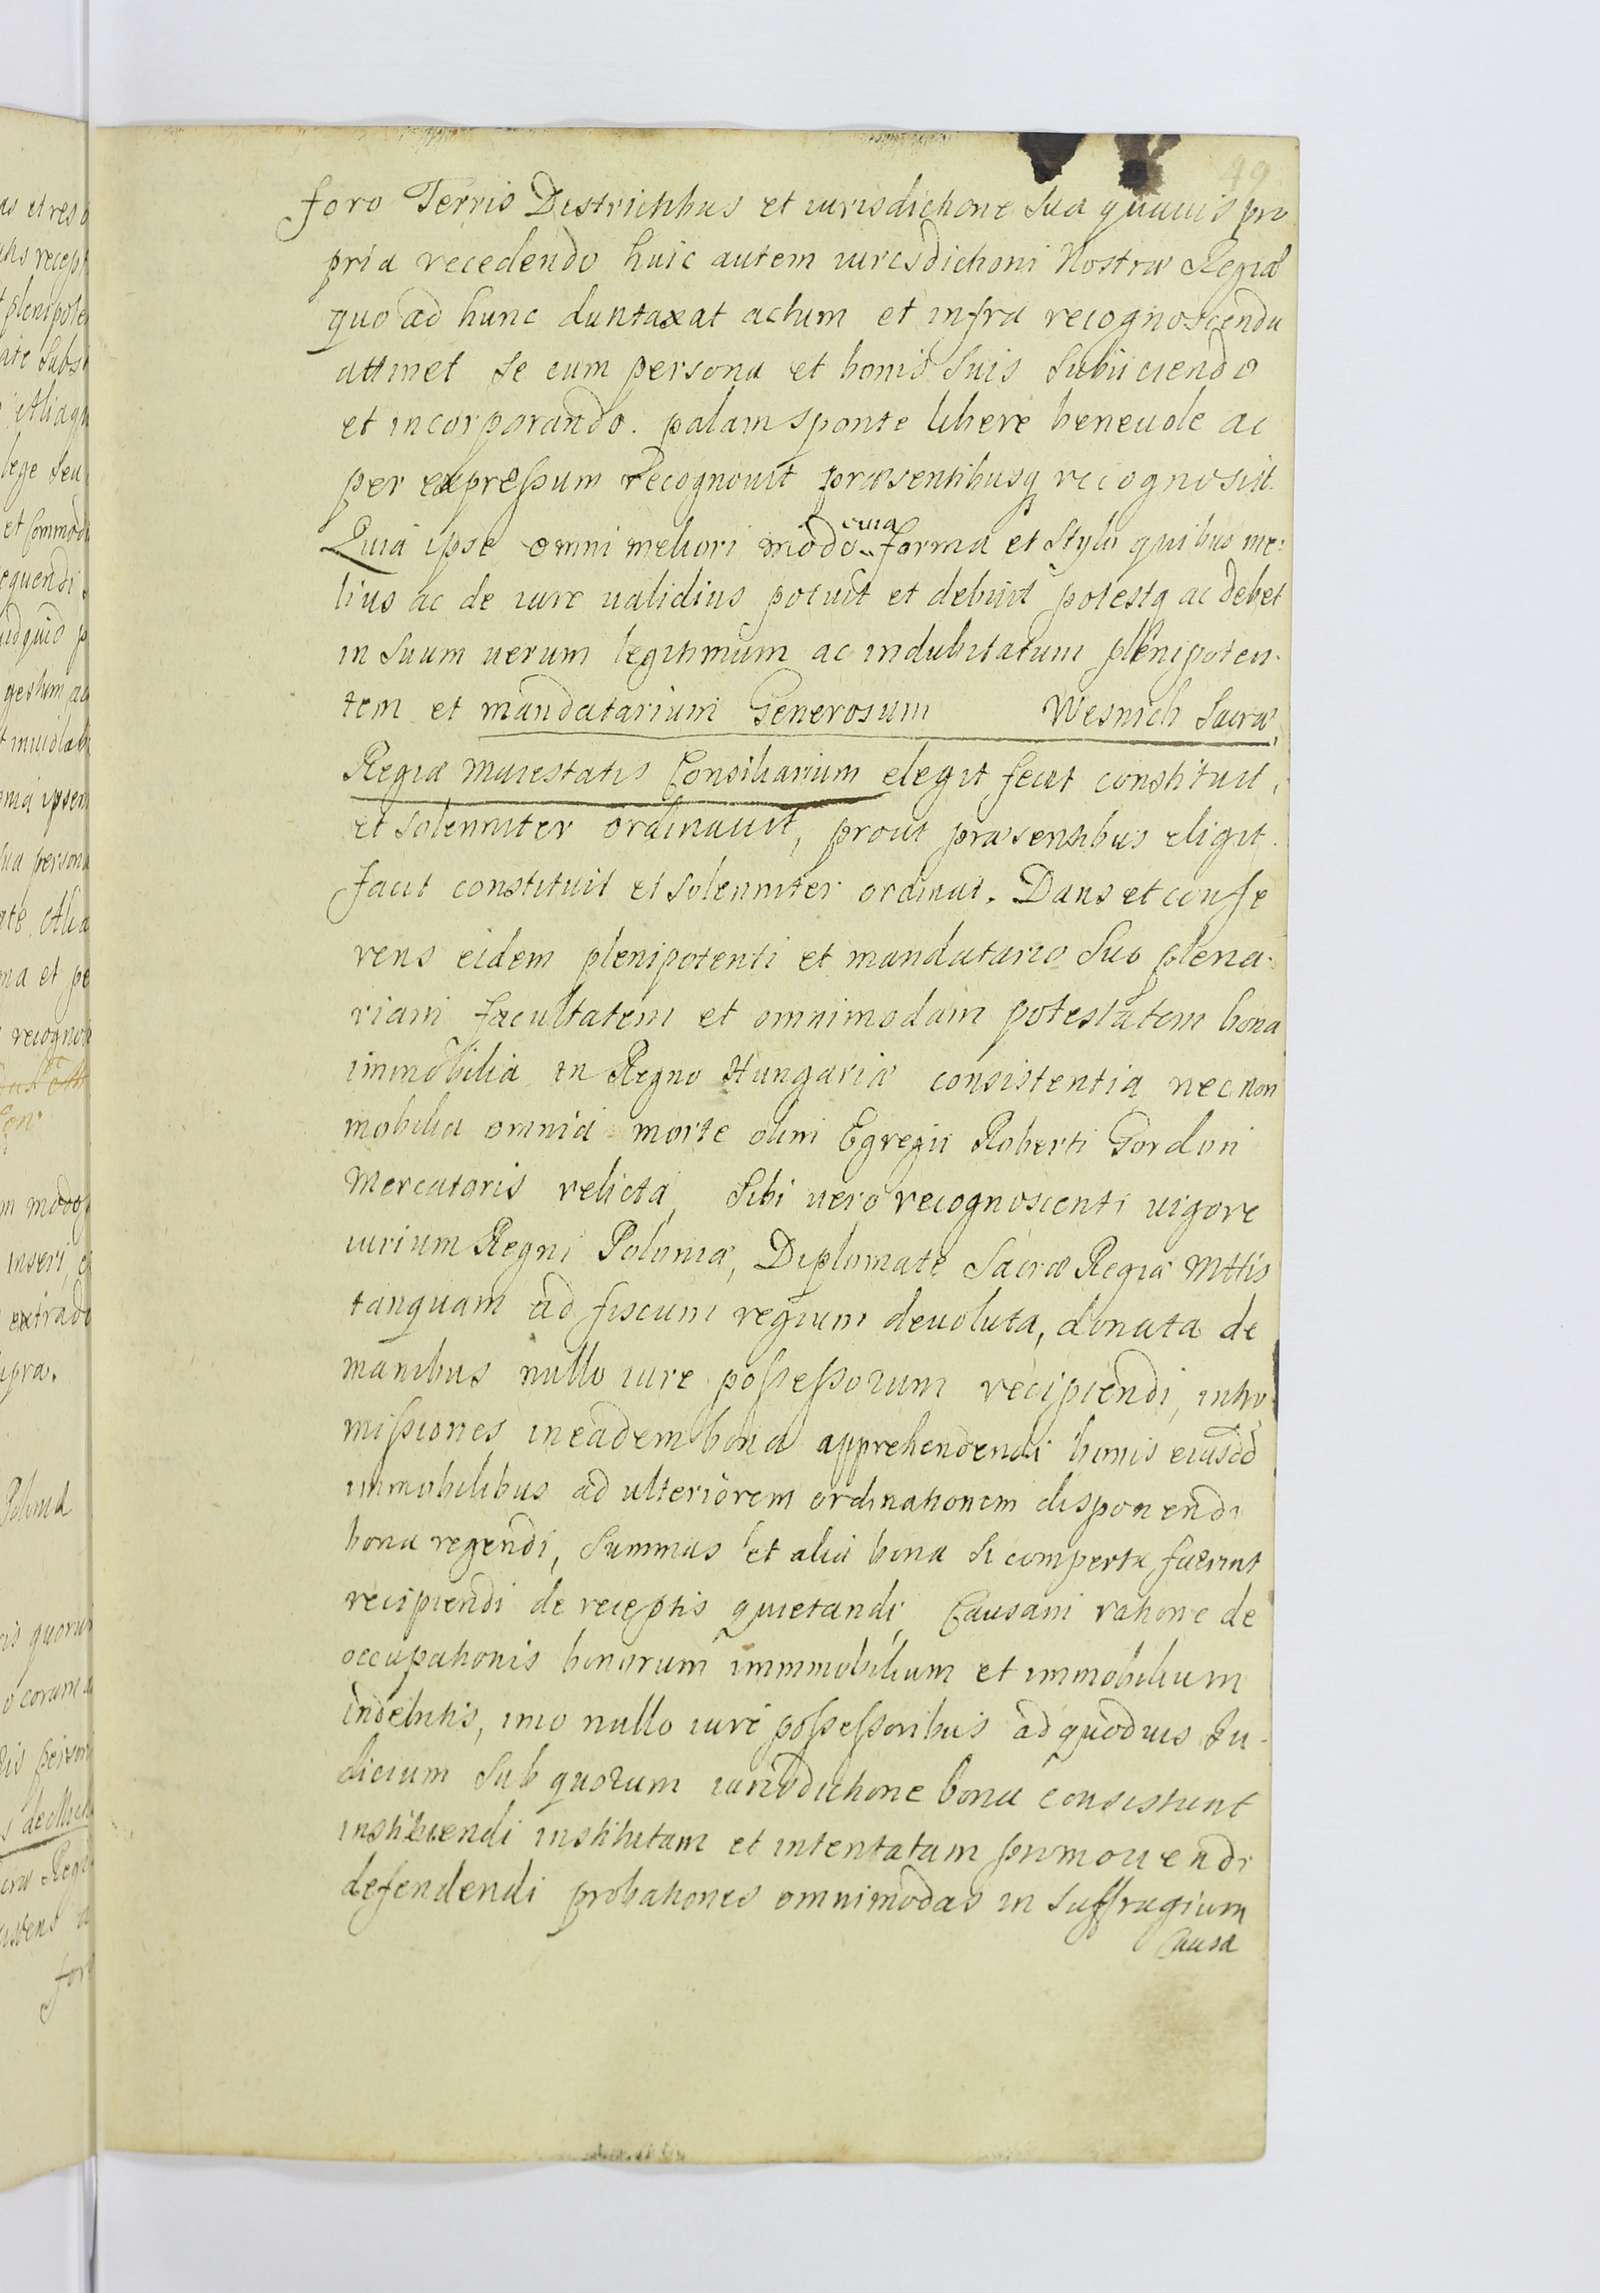 49
foro Terris Districtibus et iurisdictione sua quauis pro
pria recedendo huic autem iurisdictioni Nostræ Regiæ
quo ad hunc duntaxat actum et infra recognoscenda
attinet se cum persona et bonis suis subiiciendo
et incorporando. palam sponte libere beneuole ac
per expressum Recognouit præsentibusq recognoscit.
Quia ipse omni meliori modo via forma et stylo quibus me:
lius ac de iure ualidius potuit et debuit potestq ac debet
in suum uerum legitimum ac indubitatum plenipoten-
tem et mandatarium Generosum Wesnich Sacræ
Regiæ Maiestatis Consiliarium elegit fecit constituit,
et solenniter ordinauit, prout præsentibus eligit.
facit constituit et solenniter ordinat. Dans et confe
rens eidem plenipotenti et mandatario suo plena-
riam facultatem et omnimodam potestatem bona
immobilia in Regno Hungariæ consistentia nec non
mobilia omnia morte olim Egregii Roberti Gordoni
Mercatoris relicta, sibi uero recognoscenti uigore
iurium Regni Poloniæ, Diplomate Sacræ Regiæ Mttis
tanquam ad fiscum regium deuoluta, donata de
manibus nullo iure possessorum recipiendi, intro
missiones in eadem bona apprehendendi bonis eiusdd
immobilibus ad ulteriorem ordinationem disponendi
bona regendi, summas et alia bona si comperta fuerint
recipiendi de receptis quietandi, Causam ratione de
occupationis bonorum immmobilium et immobilium
indebitis, imo nullo iure possessoribus ad quoduis Iu-
dicium sub quorum iurisdictione bona consistunt
instituendi institutam et intentatam promouendi
defendendi probationes omnimodas in suffragium
Causa